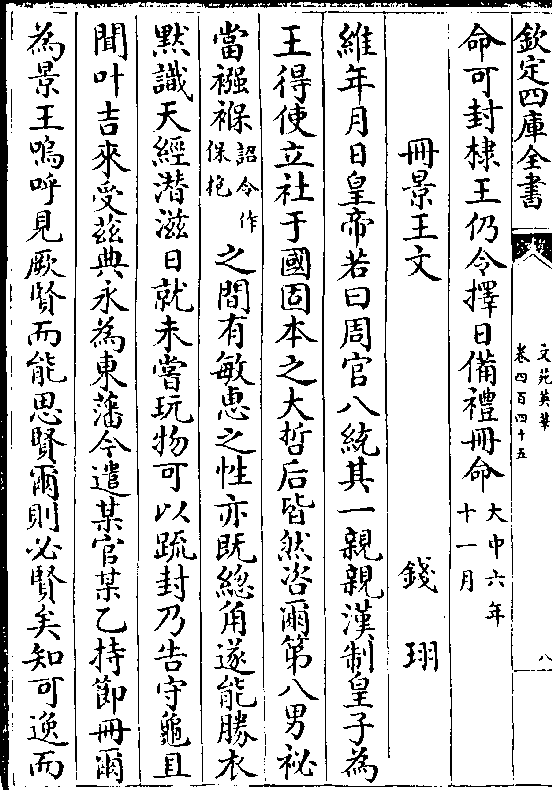 欽定四庫全書
文苑英華
卷四百四十五
八
命可封棣王仍令擇日備禮冊命大中六年十一月
冊景王文
錢珝
維年月日皇帝若曰周官八統其一親親漢制皇子為
王得使立社于國固本之大哲后皆然咨爾第八男祕
當襁褓詔令作保抱之間有敏惠之性亦既緫角遂能勝衣
黙識天經潛滋日就未嘗玩物可以疏封乃告守龜且
聞叶吉來受茲典永為東藩今遣某官某乙持節冊爾
為景王嗚呼見厥賢而能思賢爾則必賢矣知可逸而